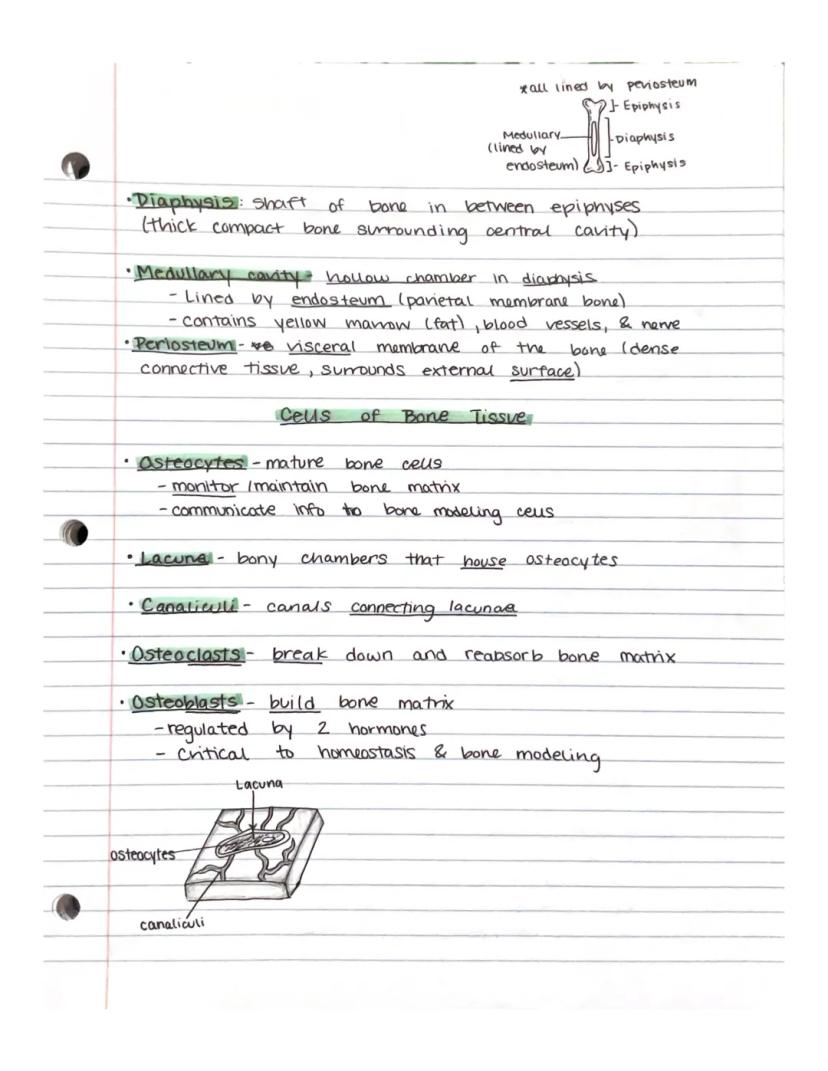 *all lined by periosteum
Epiphysis
Medullary
(lined by
endosteum)
Diaphysis
Epiphysis
• Diaphysis: shaft of bone in between epiphyses
(thick compact bone surrounding central cavity)
• Medullary cavity - hollow chamber in diaphysis
- Lined by endosteum (parietal membrane bone)
- contains yellow marrow (fat), blood vessels, & nerve
• Periosteum - visceral membrane of the bone (dense
connective tissue, surrounds external surface)
Cells of Bone Tissue
• Osteocytes - mature bone cells
- monitor /maintain bone matrix
- communicate info to bone modeling cells
• Lacuna - bony chambers that house osteocytes
• Canaliculi - canals connecting lacunae
• Osteoclasts - break down and reabsorb bone matrix
• Osteoblasts - build bone matrix
- regulated by 2 hormones
- critical to homeostasis & bone modeling
Lacuna
osteocytes
canaliculi